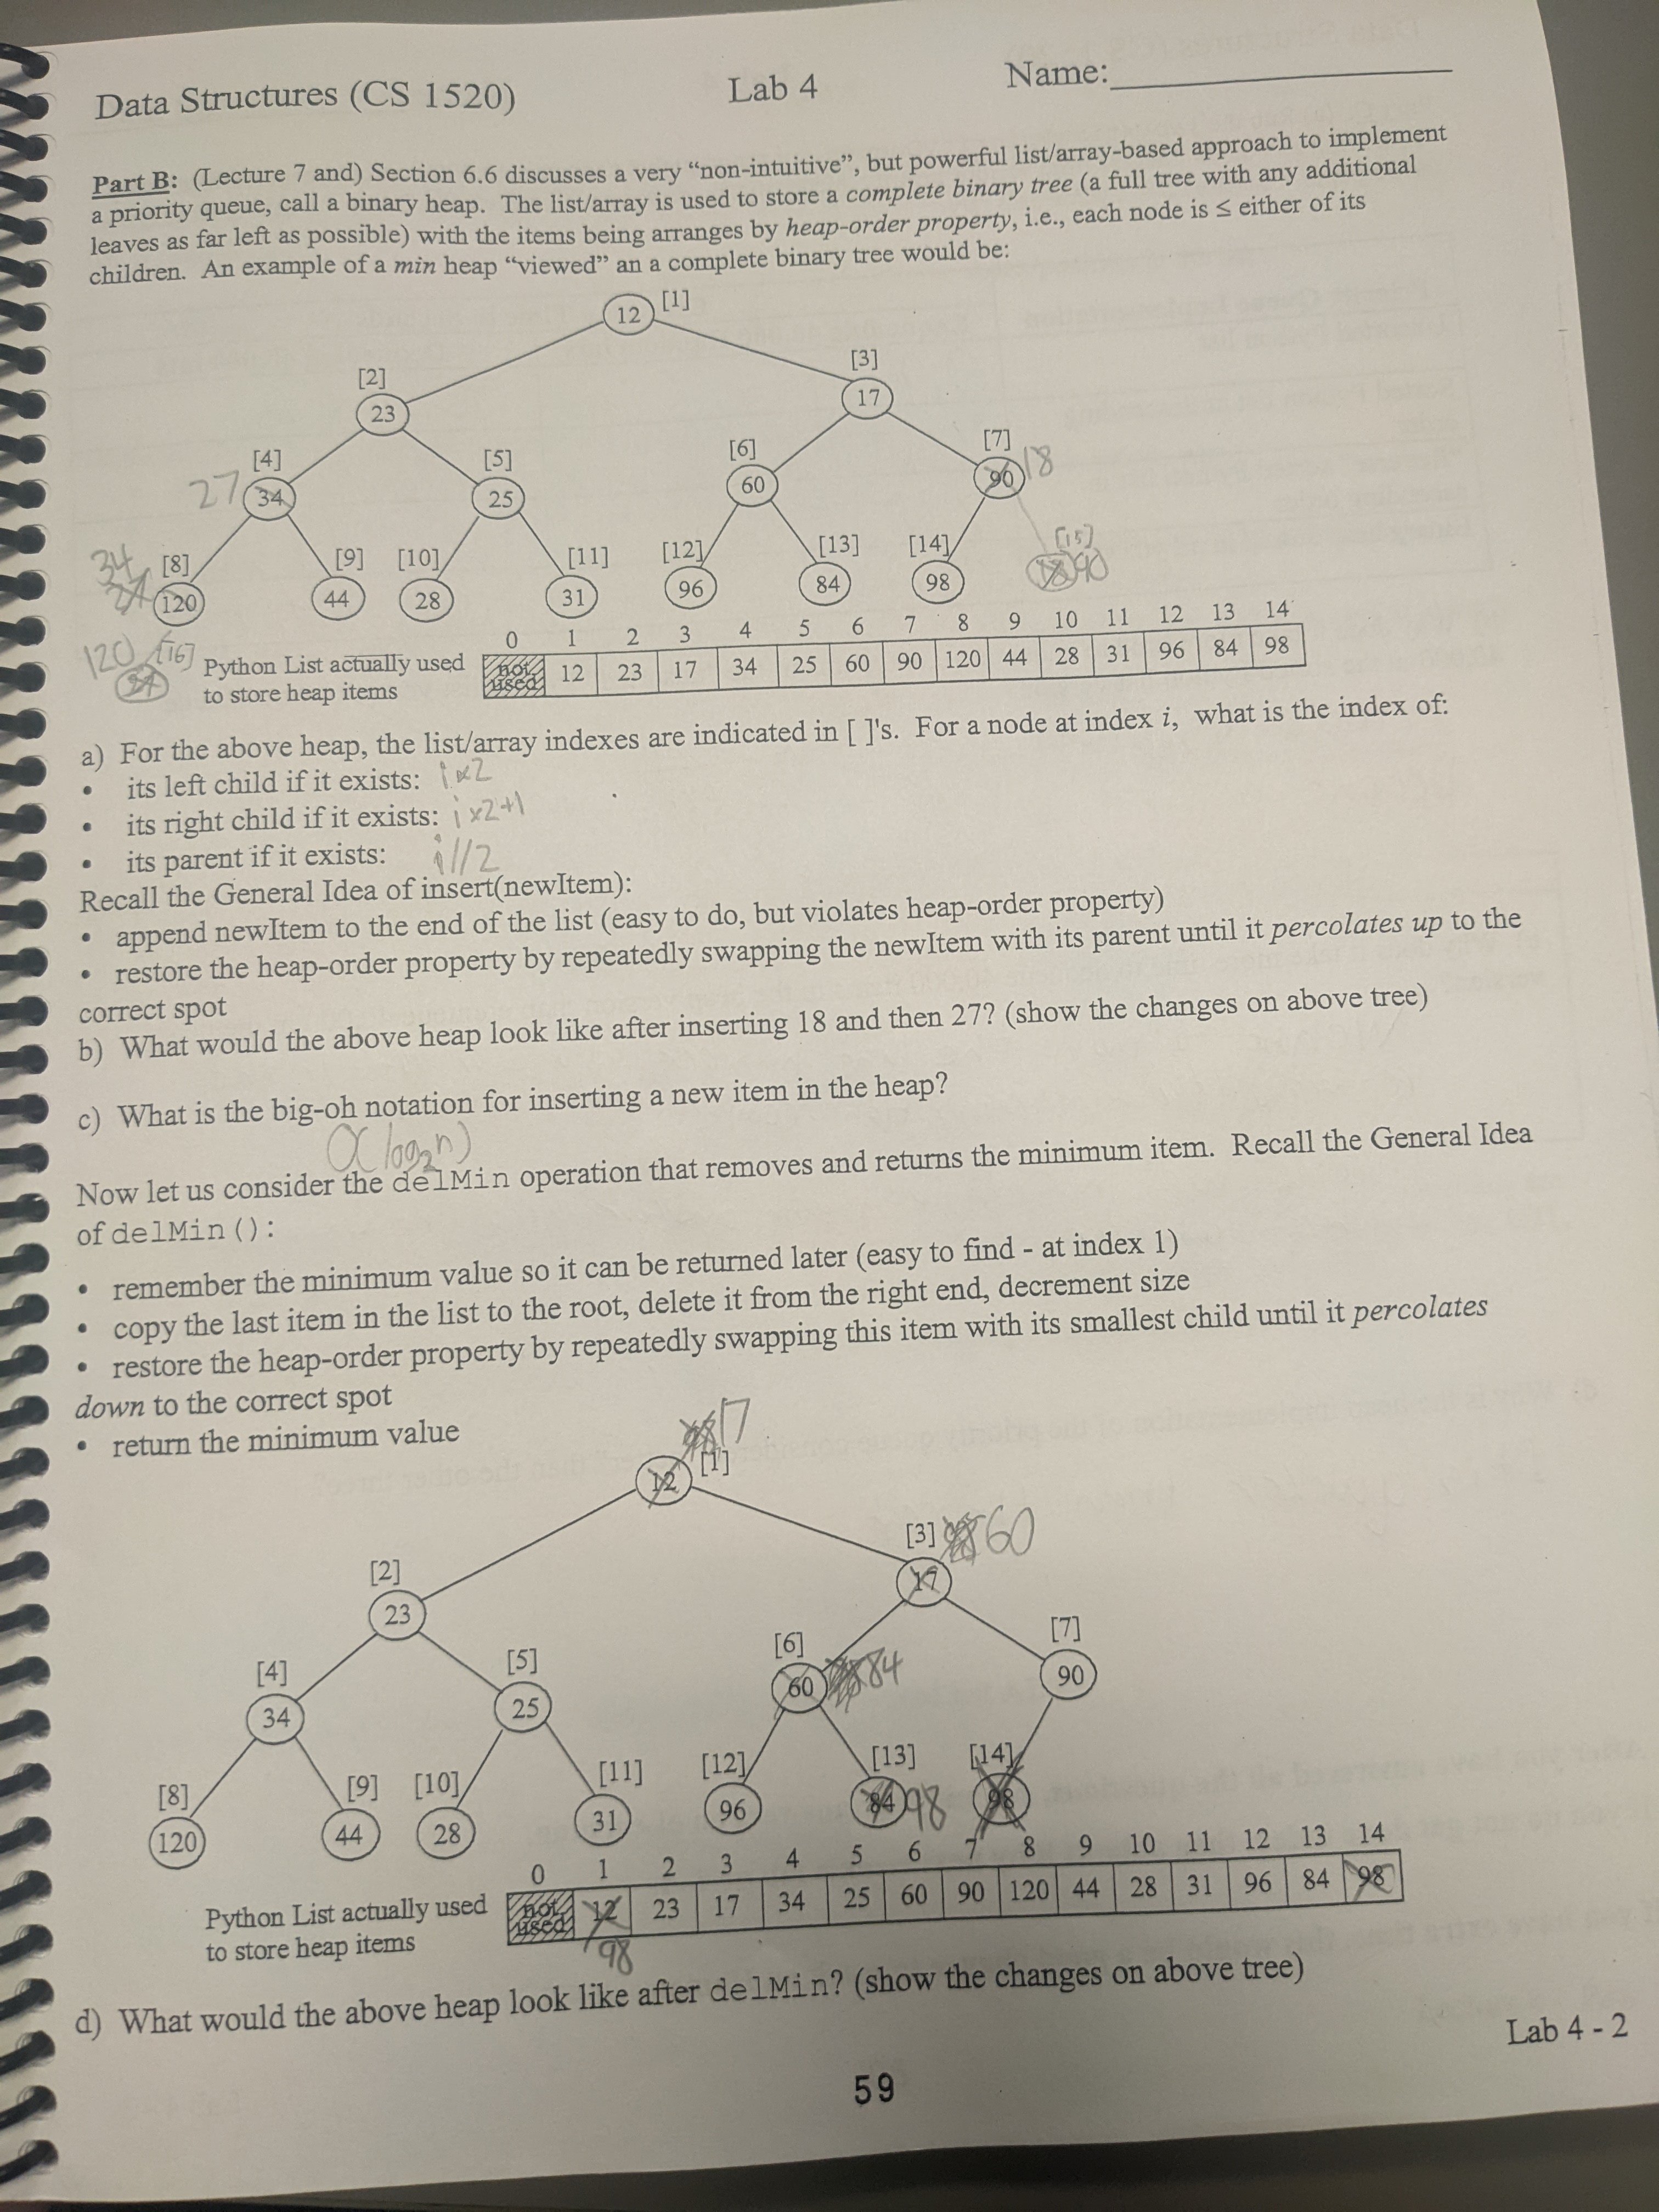 Data Structures (CS 1520) Lab 4 Name:
Part B: (Lecture 7 and) Section 6.6 discusses a very “non-intuitive”, but powerful list/array-based approach to implement
a priority queue, call a binary heap. The list/array is used to store a complete binary tree (a full tree with any additional
leaves as far left as possible) with the items being arranges by heap-order property, i.e., each node is ≤ either of its
children. An example of a min heap “viewed” an a complete binary tree would be:
12 [1]
[2] [3]
23 17
[4] [5] [6] [7]
27 34 25 60 90 18
[8] [9] [10] [11] [12] [13] [14] [15]
34 27 120 44 28 31 96 84 98 18 90
120 [16] 27
0 1 2 3 4 5 6 7 8 9 10 11 12 13 14
Python List actually used not 12 23 17 34 25 60 90 120 44 28 31 96 84 98
to store heap items used
a) For the above heap, the list/array indexes are indicated in [ ]'s. For a node at index i, what is the index of:
• its left child if it exists: i×2
• its right child if it exists: i×2+1
• its parent if it exists: i//2
Recall the General Idea of insert(newItem):
• append newItem to the end of the list (easy to do, but violates heap-order property)
• restore the heap-order property by repeatedly swapping the newItem with its parent until it percolates up to the
correct spot
b) What would the above heap look like after inserting 18 and then 27? (show the changes on above tree)
c) What is the big-oh notation for inserting a new item in the heap?
O(log₂n)
Now let us consider the delMin operation that removes and returns the minimum item. Recall the General Idea
of delMin():
• remember the minimum value so it can be returned later (easy to find - at index 1)
• copy the last item in the list to the root, delete it from the right end, decrement size
• restore the heap-order property by repeatedly swapping this item with its smallest child until it percolates
down to the correct spot
• return the minimum value
98 17
12 [1]
[3] 60
[2] 17
23
[4] [5] [6] [7]
34 25 60 84 90
[8] [9] [10] [11] [12] [13] [14]
120 44 28 31 96 84 98 98
0 1 2 3 4 5 6 7 8 9 10 11 12 13 14
Python List actually used not 12 23 17 34 25 60 90 120 44 28 31 96 84 98
to store heap items used
98
d) What would the above heap look like after delMin? (show the changes on above tree)
Lab 4 - 2
59